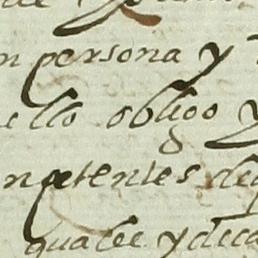 n persona y
ello obligo y
npetentes de
quales y deca